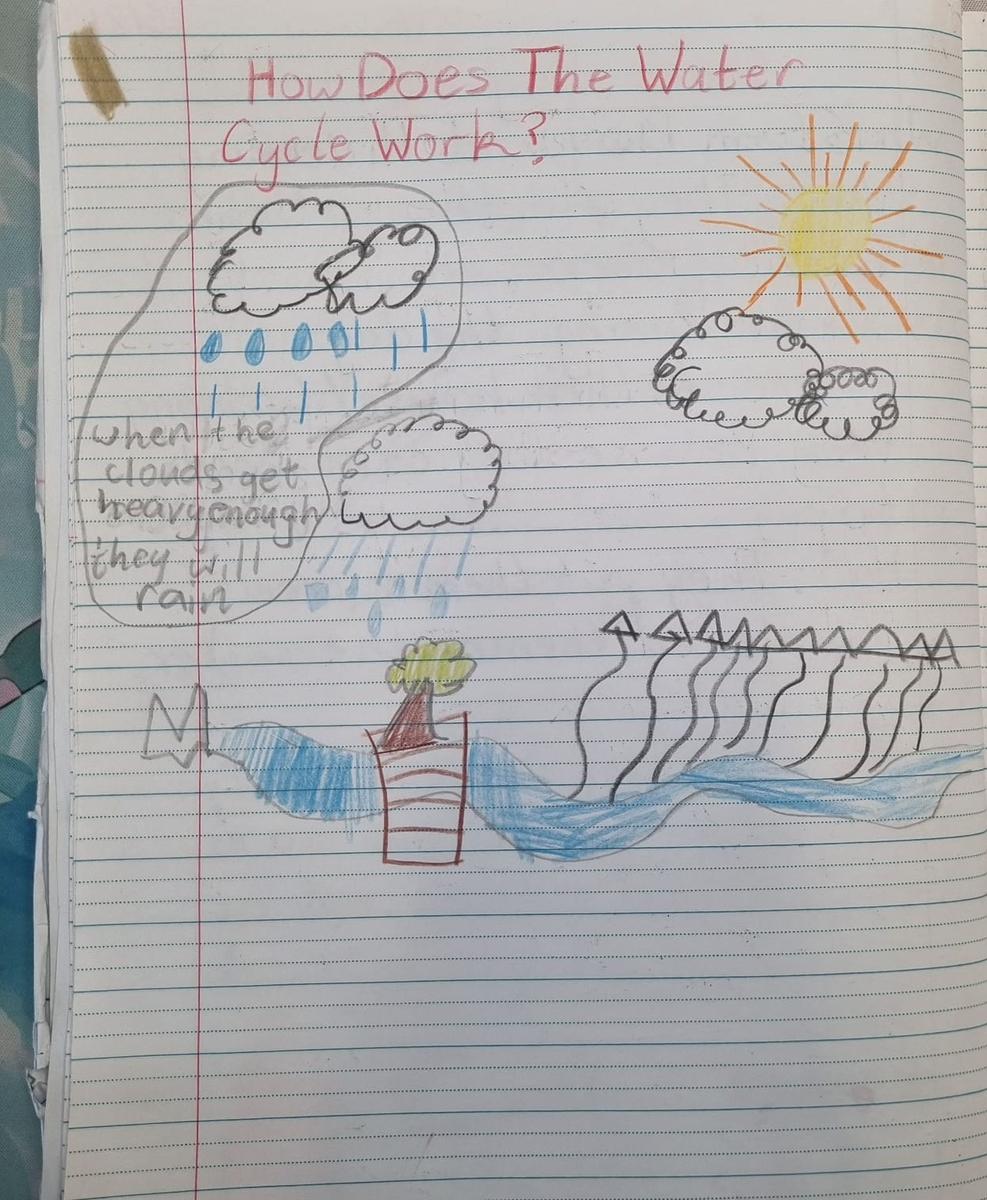 How Does The Water
Cycle Work?
when the
clouds get
heavy enough
they will
rain